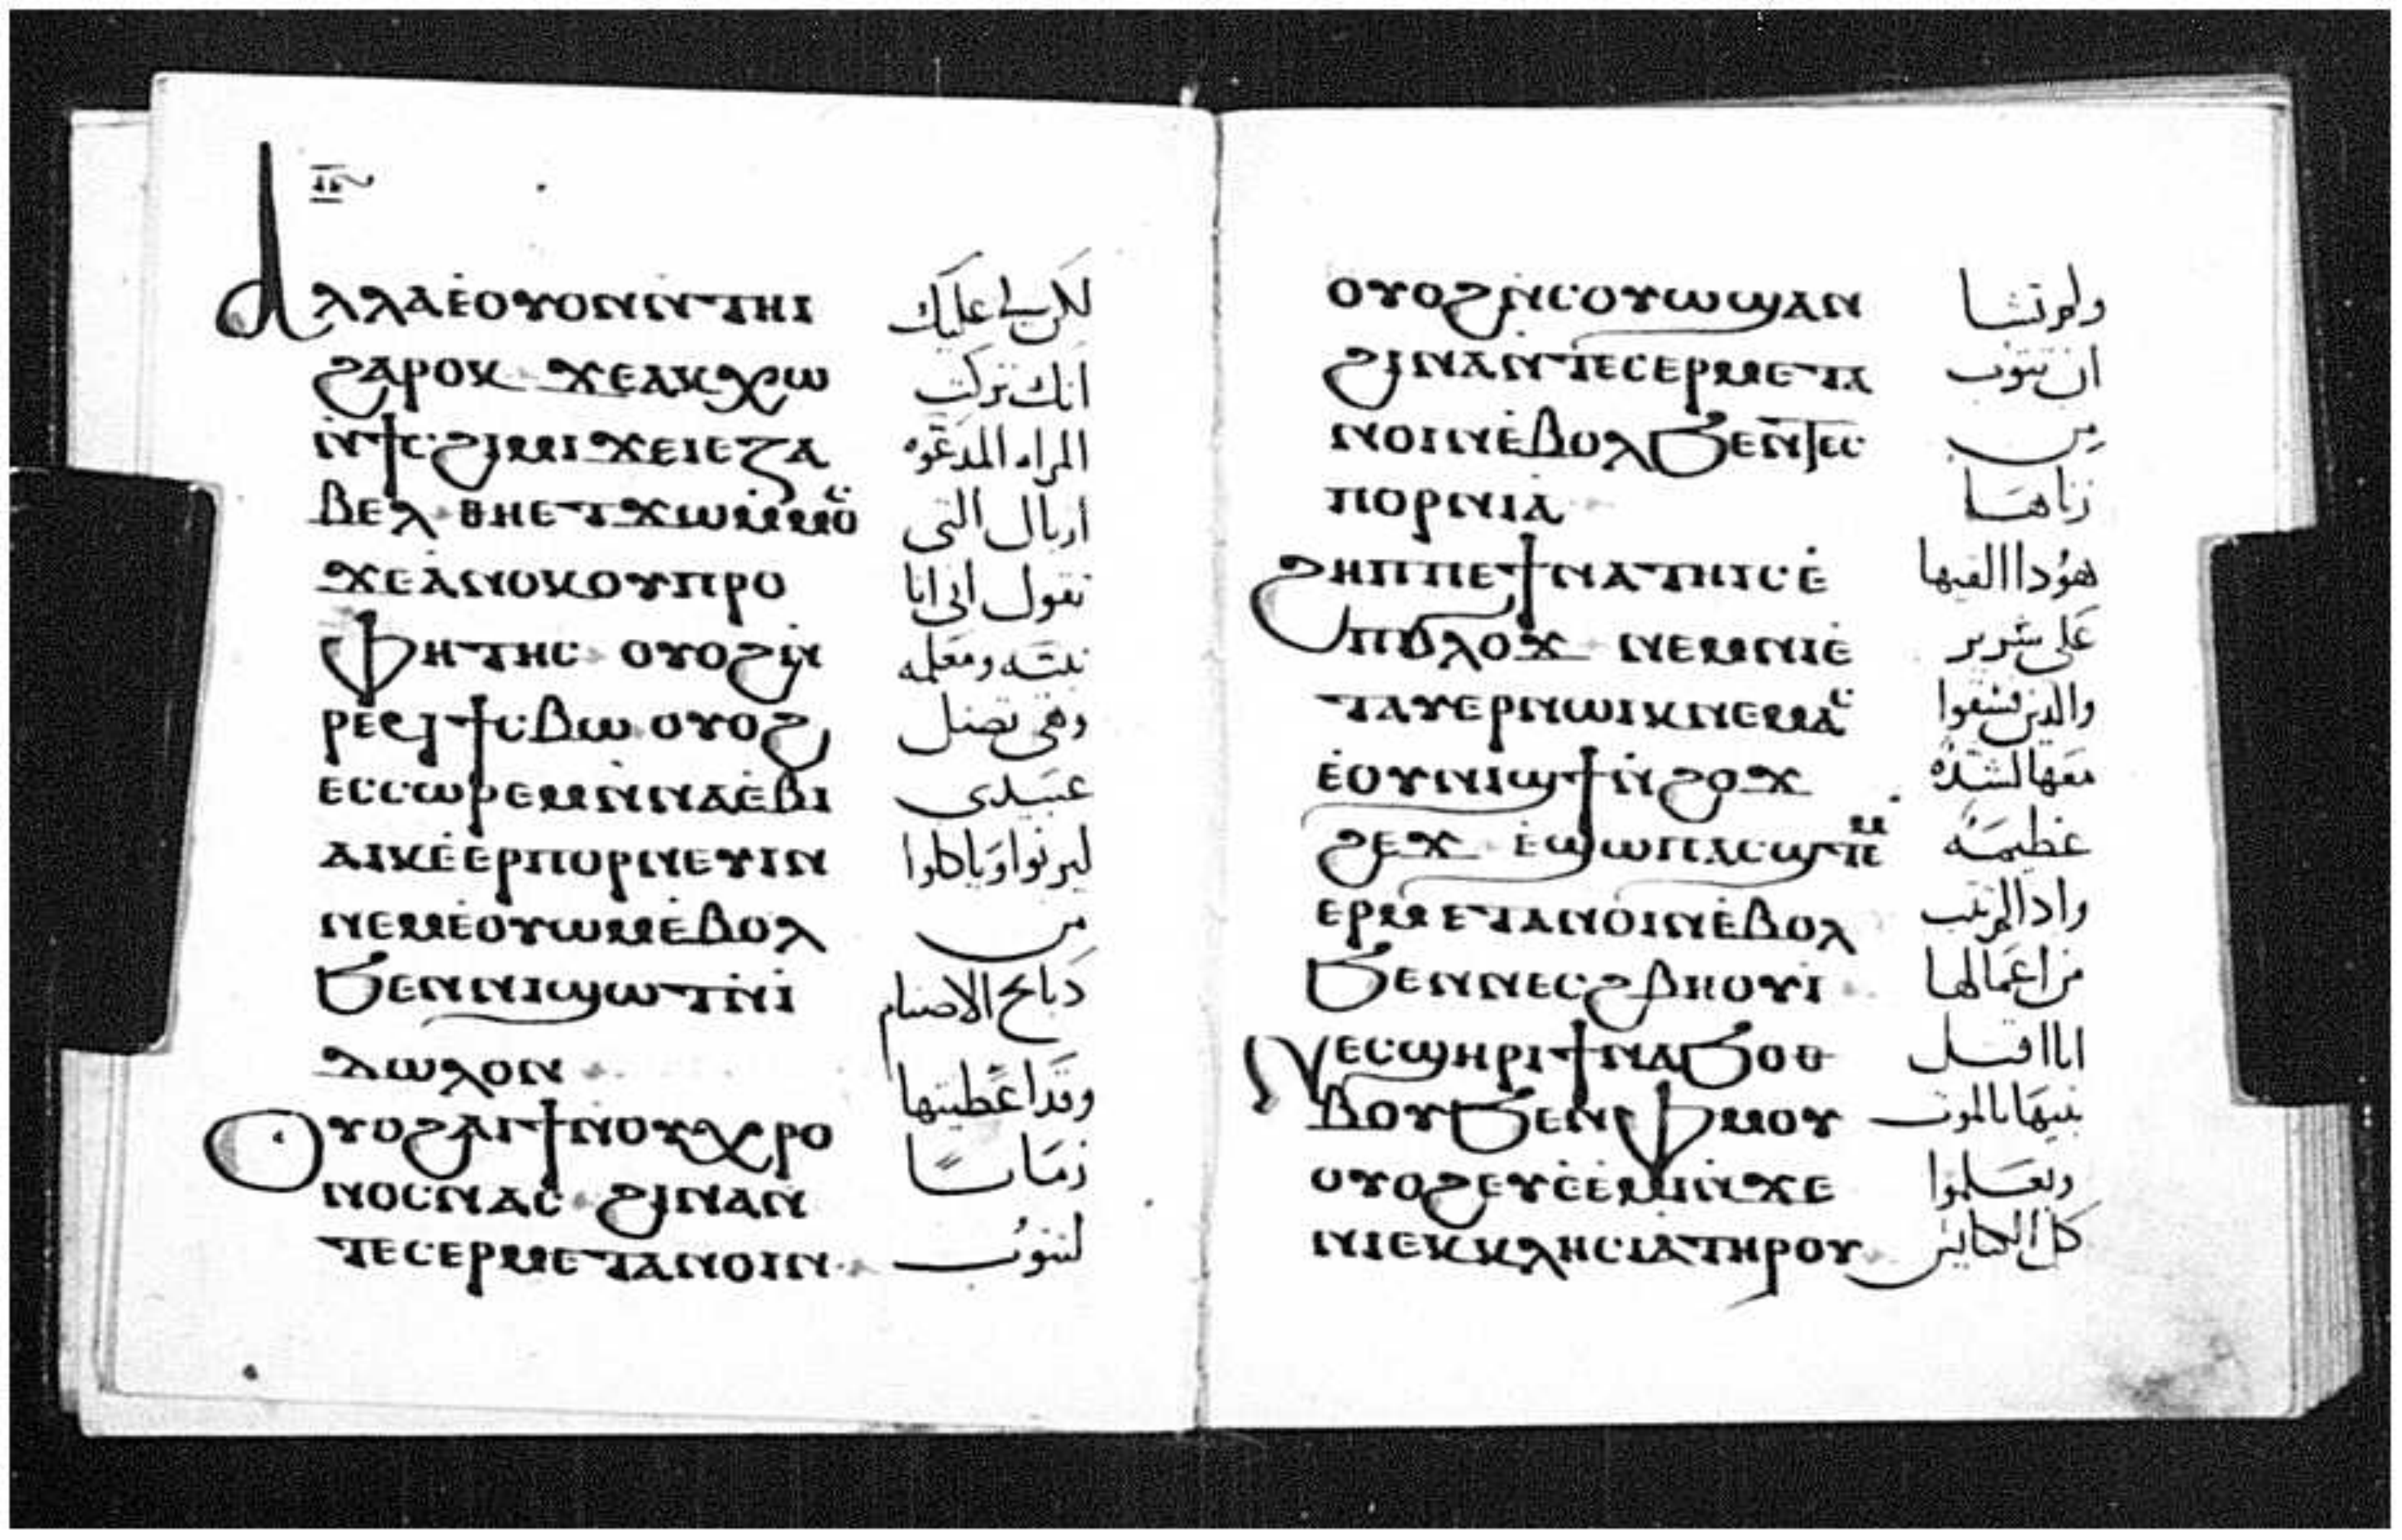 ⲁⲗⲗⲁⲉ̇ⲟⲩⲟⲛⲛ̇ⲧⲏⲓ لكن لي عليك
ϩⲁⲣⲟⲕ ϫⲉⲁⲕⲭⲱ انك تركت
ⲛ̇ϯⲥϩⲓⲙⲓ ϫⲉⲓⲉⲍⲁ المراه المدعوه
ⲃⲉⲗ ⲑⲏⲉⲧϫⲱⲙ̇ⲙⲟⲥ ازبال التى
ϫⲉⲁ̇ⲛⲟⲕⲟⲩⲡⲣⲟ تقول انى انا
ⲫⲏⲧⲏⲥ ⲟⲩⲟϩⲛ̇ نبيه ومعلمه
ⲣⲉϥϯⲥⲃⲱ ⲟⲩⲟϩ وهى تضل
ⲉⲥⲥⲱⲣⲉⲙⲛ̇ⲛⲁⲉ̇ⲃⲓ عبيدى
ⲁⲓⲕⲉ̇ⲉⲣⲡⲟⲣⲛⲉⲩⲓⲛ ليزنوا وياكلوا
ⲛⲉⲙⲉ̇ⲟⲩⲱⲙⲉ̇ⲃⲟⲗ من
ϧⲉⲛⲛⲓϣⲱⲧⲛ̇ⲓ̇ دبايح الاصنام
ⲇⲱⲗⲟⲛ
ⲟⲩⲟϩⲁⲓϯⲛ̇ⲟⲩⲭⲣⲟ وقد اعطيتها
ⲛⲟⲥⲛⲁⲥ ϩⲓⲛⲁⲛ̇ زمانا
ⲧⲉⲥⲉⲣⲙⲉⲧⲁⲛⲟⲓⲛ لتتوب
ⲟⲩⲟϩⲛ̇ⲥⲟⲩⲱϣⲁⲛ ولم تشا
ϩⲓⲛⲁⲛ̇ⲧⲉⲥⲉⲣⲙⲉⲧⲁ ان تتوب
ⲛⲟⲓⲛⲉ̇ⲃⲟⲗϧⲉⲛⲧⲉⲥ من
ⲡⲟⲣⲛⲓⲁ زناها
ϩⲏⲡⲡⲉϯⲛⲁⲧⲏⲓⲥⲉ̇ هوذا القيها
ⲡϭⲗⲟϫ ⲛⲉⲙⲛⲓⲉ̇ على سرير
ⲧⲁⲩⲉⲣⲛⲱⲓⲕⲛⲉⲙⲁⲥ والذين فسقوا
ⲉ̇ⲟⲩⲛⲓϣϯⲛ̇ϩⲟϫ معها لشده
ϩⲉϫ ⲉ̇ϣⲱⲡⲁⲥϣⲧⲉⲙ عظيمه
ⲉⲣⲙⲉⲧⲁⲛⲟⲓⲛⲉ̇ⲃⲟⲗ واذا لم تتب
ϧⲉⲛⲛⲉⲥϩⲃⲏⲟⲩⲓ من اعمالها
ⲛⲉⲥϣⲏⲣⲓϯⲛⲁϧⲟⲑ انا اقتل
ⲃⲟⲩϧⲉⲛⲫⲙⲟⲩ بنيها بالموت
ⲟⲩⲟϩⲉⲩⲉ̇ⲉ̇ⲙⲓⲛ̇ϫⲉ ويعلموا
ⲛⲓⲉⲕⲕⲗⲏⲥⲓⲁⲧⲏⲣⲟⲩ كل الكنايس